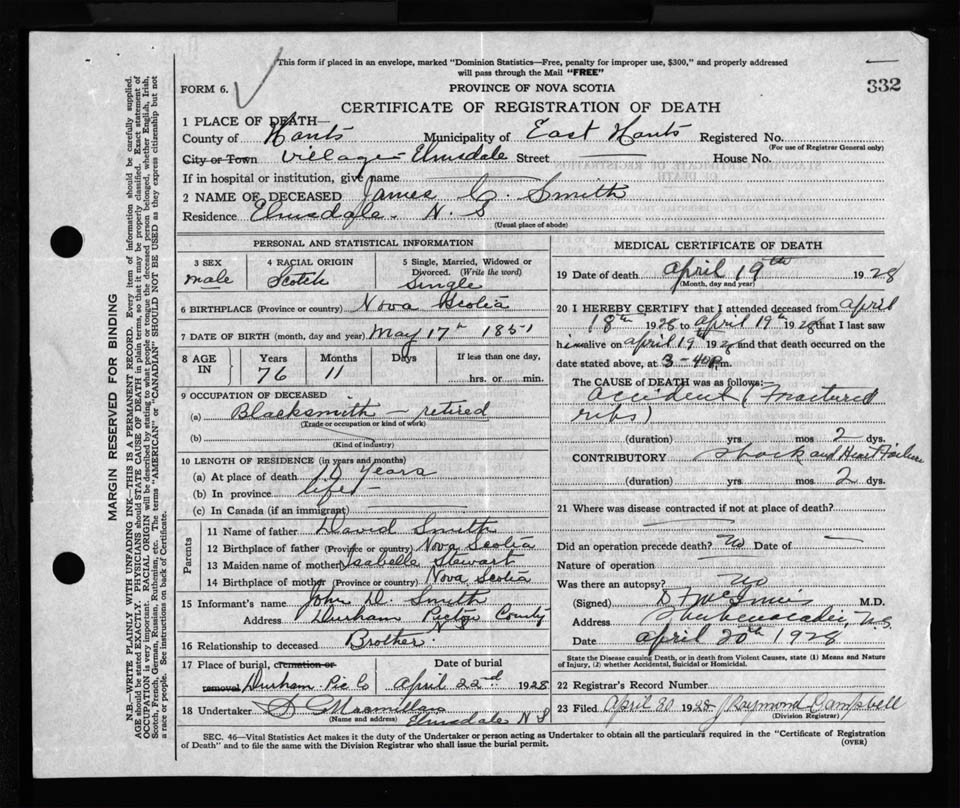 This form if placed in an envelope, marked "Dominion Statistics—Free, penalty for improper use, $300," and properly addressed
will pass through the Mail "FREE"
FORM 6.
PROVINCE OF NOVA SCOTIA
332
CERTIFICATE OF REGISTRATION OF DEATH
1 PLACE OF DEATH—
County of Hants Municipality of East Hants Registered No.
(For use of Registrar General only)
City or Town Village Elmsdale Street House No.
If in hospital or institution, give name
2 NAME OF DECEASED James C. Smith
Residence Elmsdale. N. S
(Usual place of abode)
PERSONAL AND STATISTICAL INFORMATION
3 SEX
male
4 RACIAL ORIGIN
Scotch
5 Single, Married, Widowed or
Divorced. (Write the word)
Single
6 BIRTHPLACE (Province or country) Nova Scotia
7 DATE OF BIRTH (month, day and year) May 17th 1851
8 AGE IN
Years Months Days If less than one day,
76 11 hrs. or min.
9 OCCUPATION OF DECEASED
(a) Blacksmith — retired
(Trade or occupation or kind of work)
(b)
(Kind of industry)
10 LENGTH OF RESIDENCE (in years and months)
(a) At place of death years
(b) In province life
(c) In Canada (if an immigrant)
Parents
11 Name of father David Smith
12 Birthplace of father (Province or country) Nova Scotia
13 Maiden name of mother Isabelle Stewart
14 Birthplace of mother (Province or country) Nova Scotia
15 Informant's name John D. Smith
Address Durham Pictou County
N S
16 Relationship to deceased Brother
17 Place of burial, cremation or
removal Durham Pic Co
Date of burial
April 22nd 1928
18 Undertaker D Macmillan
(Name and address) Elmsdale N S
MEDICAL CERTIFICATE OF DEATH
19 Date of death April 19th 1928
(Month, day and year)
20 I HEREBY CERTIFY that I attended deceased from April
18th 1928 to April 19th 1928 that I last saw
him alive on April 19 1928 and that death occurred on the
date stated above, at 3-40 p.m.
The CAUSE of DEATH was as follows:—
Accident (Fractured
ribs)
(duration) yrs. mos 2 dys.
CONTRIBUTORY Shock and Heart Failure
(duration) yrs. mos 2 dys.
21 Where was disease contracted if not at place of death?
Did an operation precede death? No Date of —
Nature of operation
Was there an autopsy? No
(Signed) D F McInnis M.D.
Address Shubenacadie, N.S.
Date April 20th 1928
State the Disease causing Death, or in death from Violent Causes, state (1) Means and Nature
of Injury, (2) whether Accidental, Suicidal or Homicidal.
22 Registrar's Record Number
23 Filed April 30 1928 J Raymond Campbell
(Division Registrar)
SEC. 46—Vital Statistics Act makes it the duty of the Undertaker or person acting as Undertaker to obtain all the particulars required in the "Certificate of Registration
of Death" and to file the same with the Division Registrar who shall issue the burial permit.
(OVER)
MARGIN RESERVED FOR BINDING
N.B.—WRITE PLAINLY WITH UNFADING INK—THIS IS A PERMANENT RECORD. Every item of information should be carefully supplied.
AGE should be stated EXACTLY. PHYSICIANS should STATE CAUSE OF DEATH in plain terms, so that it may be properly classified. Exact statement of
OCCUPATION is very important. RACIAL ORIGIN will be described by stating to what people or tongue the deceased person belonged, whether English, Irish,
Scotch, French, German, Russian, Ruthenian, etc. The terms "AMERICAN" or "CANADIAN" SHOULD NOT BE USED as they express citizenship but not
a race or people. See instructions on back of Certificate.